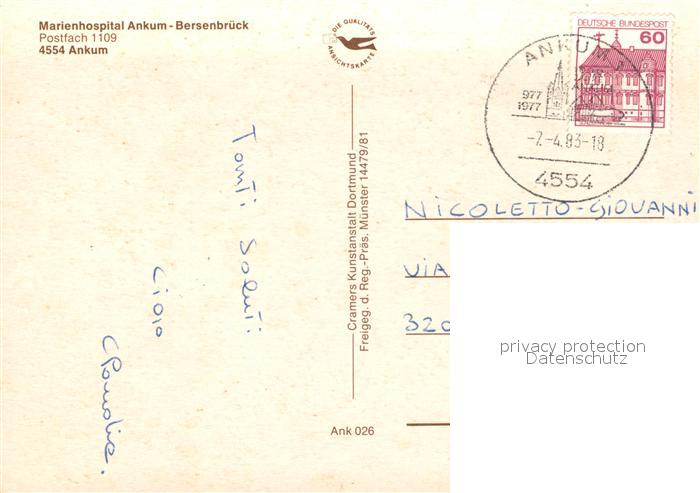 Marienhospital Ankum - Bersenbrück
Postfach 1109
4554 Ankum
DIE QUALITÄTS
ANSICHTSKARTE
DEUTSCHE BUNDESPOST
60
ANKUM
977
1977
-7.-4.83-18
4554
Tanti Saluti
Ciao
Claudia.
Cramers Kunstanstalt Dortmund
Freigeg. d. Reg.-Präs. Münster 14479/81
NICOLETTO-GIOVANNI
VIA
320
Ank 026
privacy protection
Datenschutz